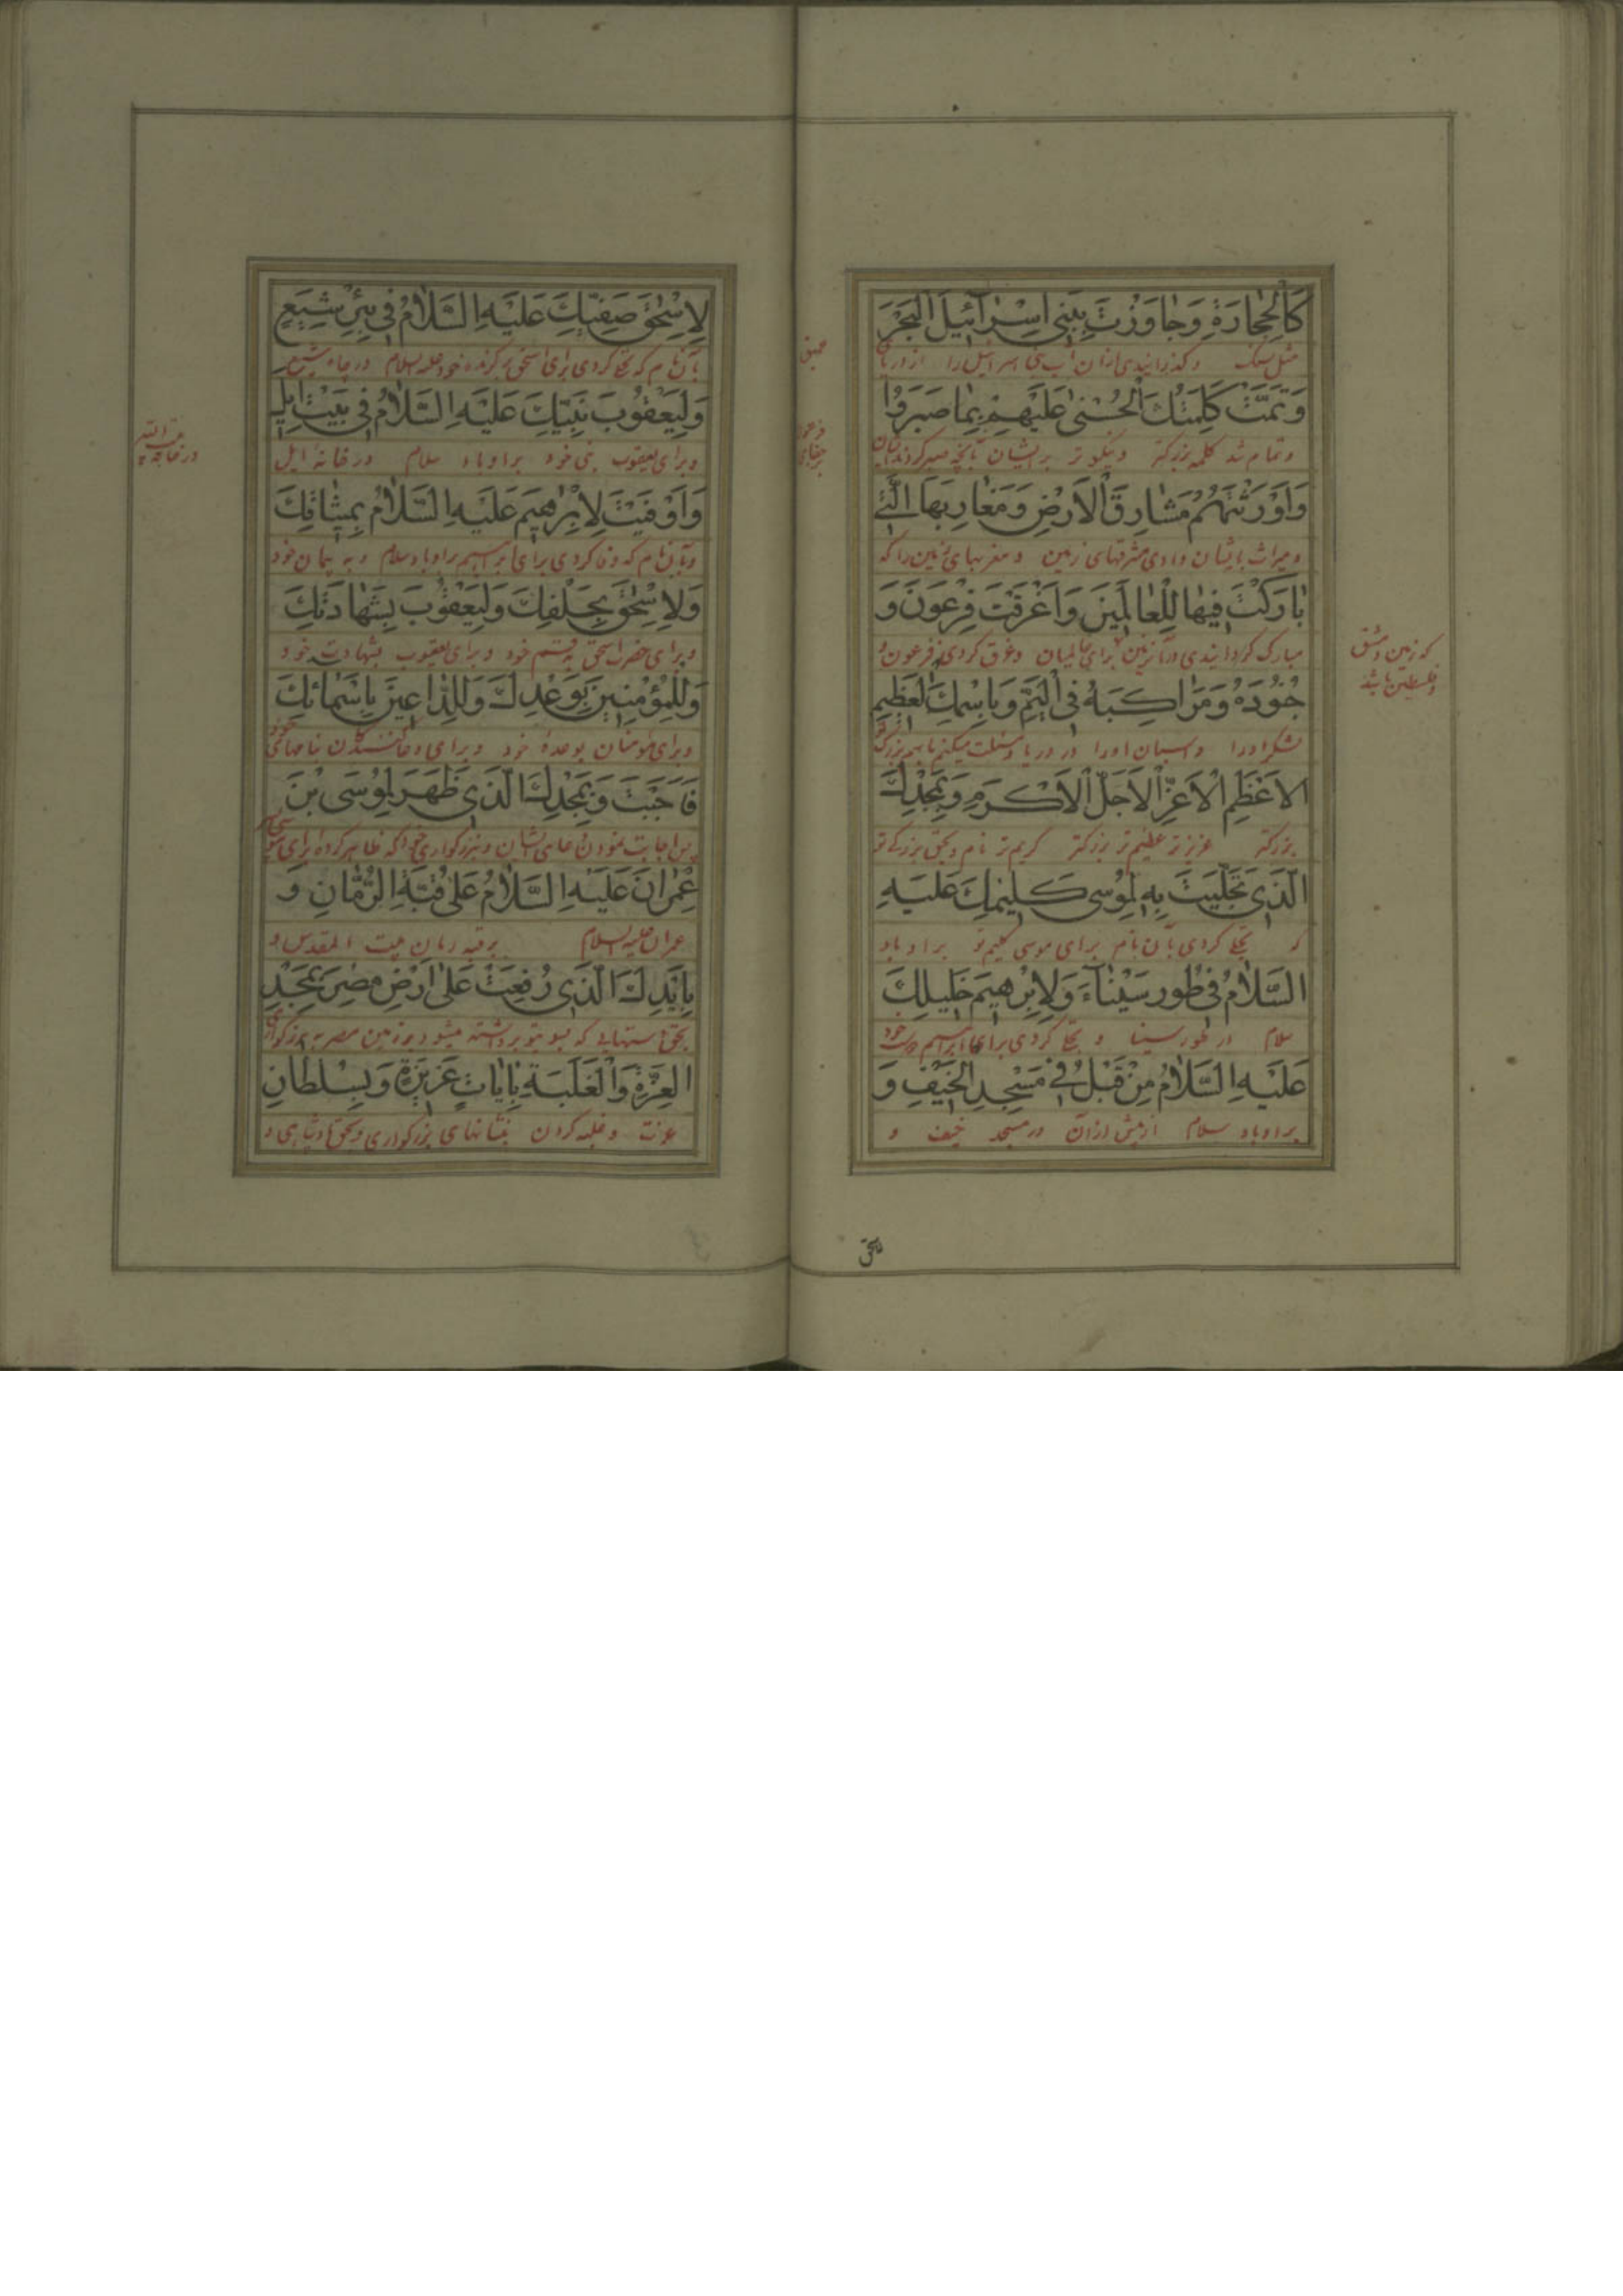 كَالْحِجَارَةِ وَجَاوَزْتَ بِبَنِي إِسْرَآئِيلَ الْبَحْرَ
مثل سنگ و گذرانیدی ازان آب بنی اسرائیل را از دریای
عمیق
وَتَمَّتْ كَلِمَتُكَ الْحُسْنَى عَلَيْهِمْ بِمَا صَبَرُوا
و تمام شد کلمه بزرگتر و نیکوتر بر ایشان بآنچه صبر کردند
وَأَوْرَثْتَهُمْ مَشَارِقَ الْأَرْضِ وَمَغَارِبَهَا الَّتِي
و میراث بایشان دادی مشرقهای زمین و مغربهای زمین را که
بَارَكْتَ فِيهَا لِلْعَالَمِينَ وَأَغْرَقْتَ فِرْعَوْنَ وَ
مبارک گردانیدی در آن زمین برای عالمیان و غرق کردی فرعون و
که زمین دمشق
و فلسطین باشد
جُنُودَهُ وَمَرَاكِبَهُ فِي الْيَمِّ وَبِاسْمِكَ الْعَظِيمِ
لشکر او را و اسبان او را در دریا و مسئلت میکنم باسم بزرگ
الْأَعْظَمِ الْأَعَزِّ الْأَجَلِّ الْأَكْرَمِ وَبِمَجْدِكَ
بزرگتر عزیزتر عظیم‌تر بزرگتر کریم‌تر نام و بحق بزرگی تو
الَّذِي تَجَلَّيْتَ بِهِ لِمُوسَى كَلِيمِكَ عَلَيْهِ
که تجلی کردی بآن نام برای موسی کلیم تو بر او باد
السَّلَامُ فِي طُورِ سَيْنَآءَ وَلِإِبْرَهِيمَ خَلِيلِكَ
سلام در طور سینا و تجلی کردی برای ابراهیم دوست خود
عَلَيْهِ السَّلَامُ مِنْ قَبْلُ فِي مَسْجِدِ الْخَيْفِ وَ
بر او باد سلام از پیش ازان در مسجد خیف و
لِإِسْحَقَ صَفِيِّكَ عَلَيْهِ السَّلَامُ فِي بِئْرِ شِيَعٍ
بآن نام که تجلی کردی برای اسحق برگزیده خود علیه السلام در چاه شیع
وَلِيَعْقُوبَ نَبِيِّكَ عَلَيْهِ السَّلَامُ فِي بَيْتِ إِيلٍ
و برای یعقوب نبی خود بر او باد سلام در خانه ایل
وَأَوْفَيْتَ لِإِبْرَهِيمَ عَلَيْهِ السَّلَامُ بِمِيثَاقِكَ
و بآن نام که وفا کردی برای ابراهیم بر او باد سلام و به پیمان خود
وَلِإِسْحَقَ بِحَلْفِكَ وَلِيَعْقُوبَ بِشَهَادَتِكَ
و برای حضرت اسحق بقسم خود و برای یعقوب بشهادت خود
وَلِلْمُؤْمِنِينَ بِوَعْدِكَ وَلِلدَّاعِينَ بِأَسْمَائِكَ
و برای مؤمنان بوعده خود و برای دعا کنندگان بنامهای خود
فَأَجَبْتَ وَبِمَجْدِكَ الَّذِي ظَهَرَ لِمُوسَى بْنِ
پس اجابت نمودی دعای ایشان و ببزرگواری خود که ظاهر کرده برای موسی
عِمْرَانَ عَلَيْهِ السَّلَامُ عَلَى قُبَّةِ الرُّمَّانِ وَ
عمران علیه السلام بر قبه رمان بیت المقدس و
بِأَيْدِكَ الَّذِي رُفِعَتْ عَلَى أَرْضِ مِصْرَ بِمَجْدِ
بحق دستهایی که بسوی تو برداشته میشود بر زمین مصر به بزرگواری
الْعِزَّةِ وَالْغَلَبَةِ بِآيَاتٍ عَزِيزَةٍ وَبِسُلْطَانِ
عزت و غلبه کردن بنشانهای بزرگواری و بحق پادشاهی و